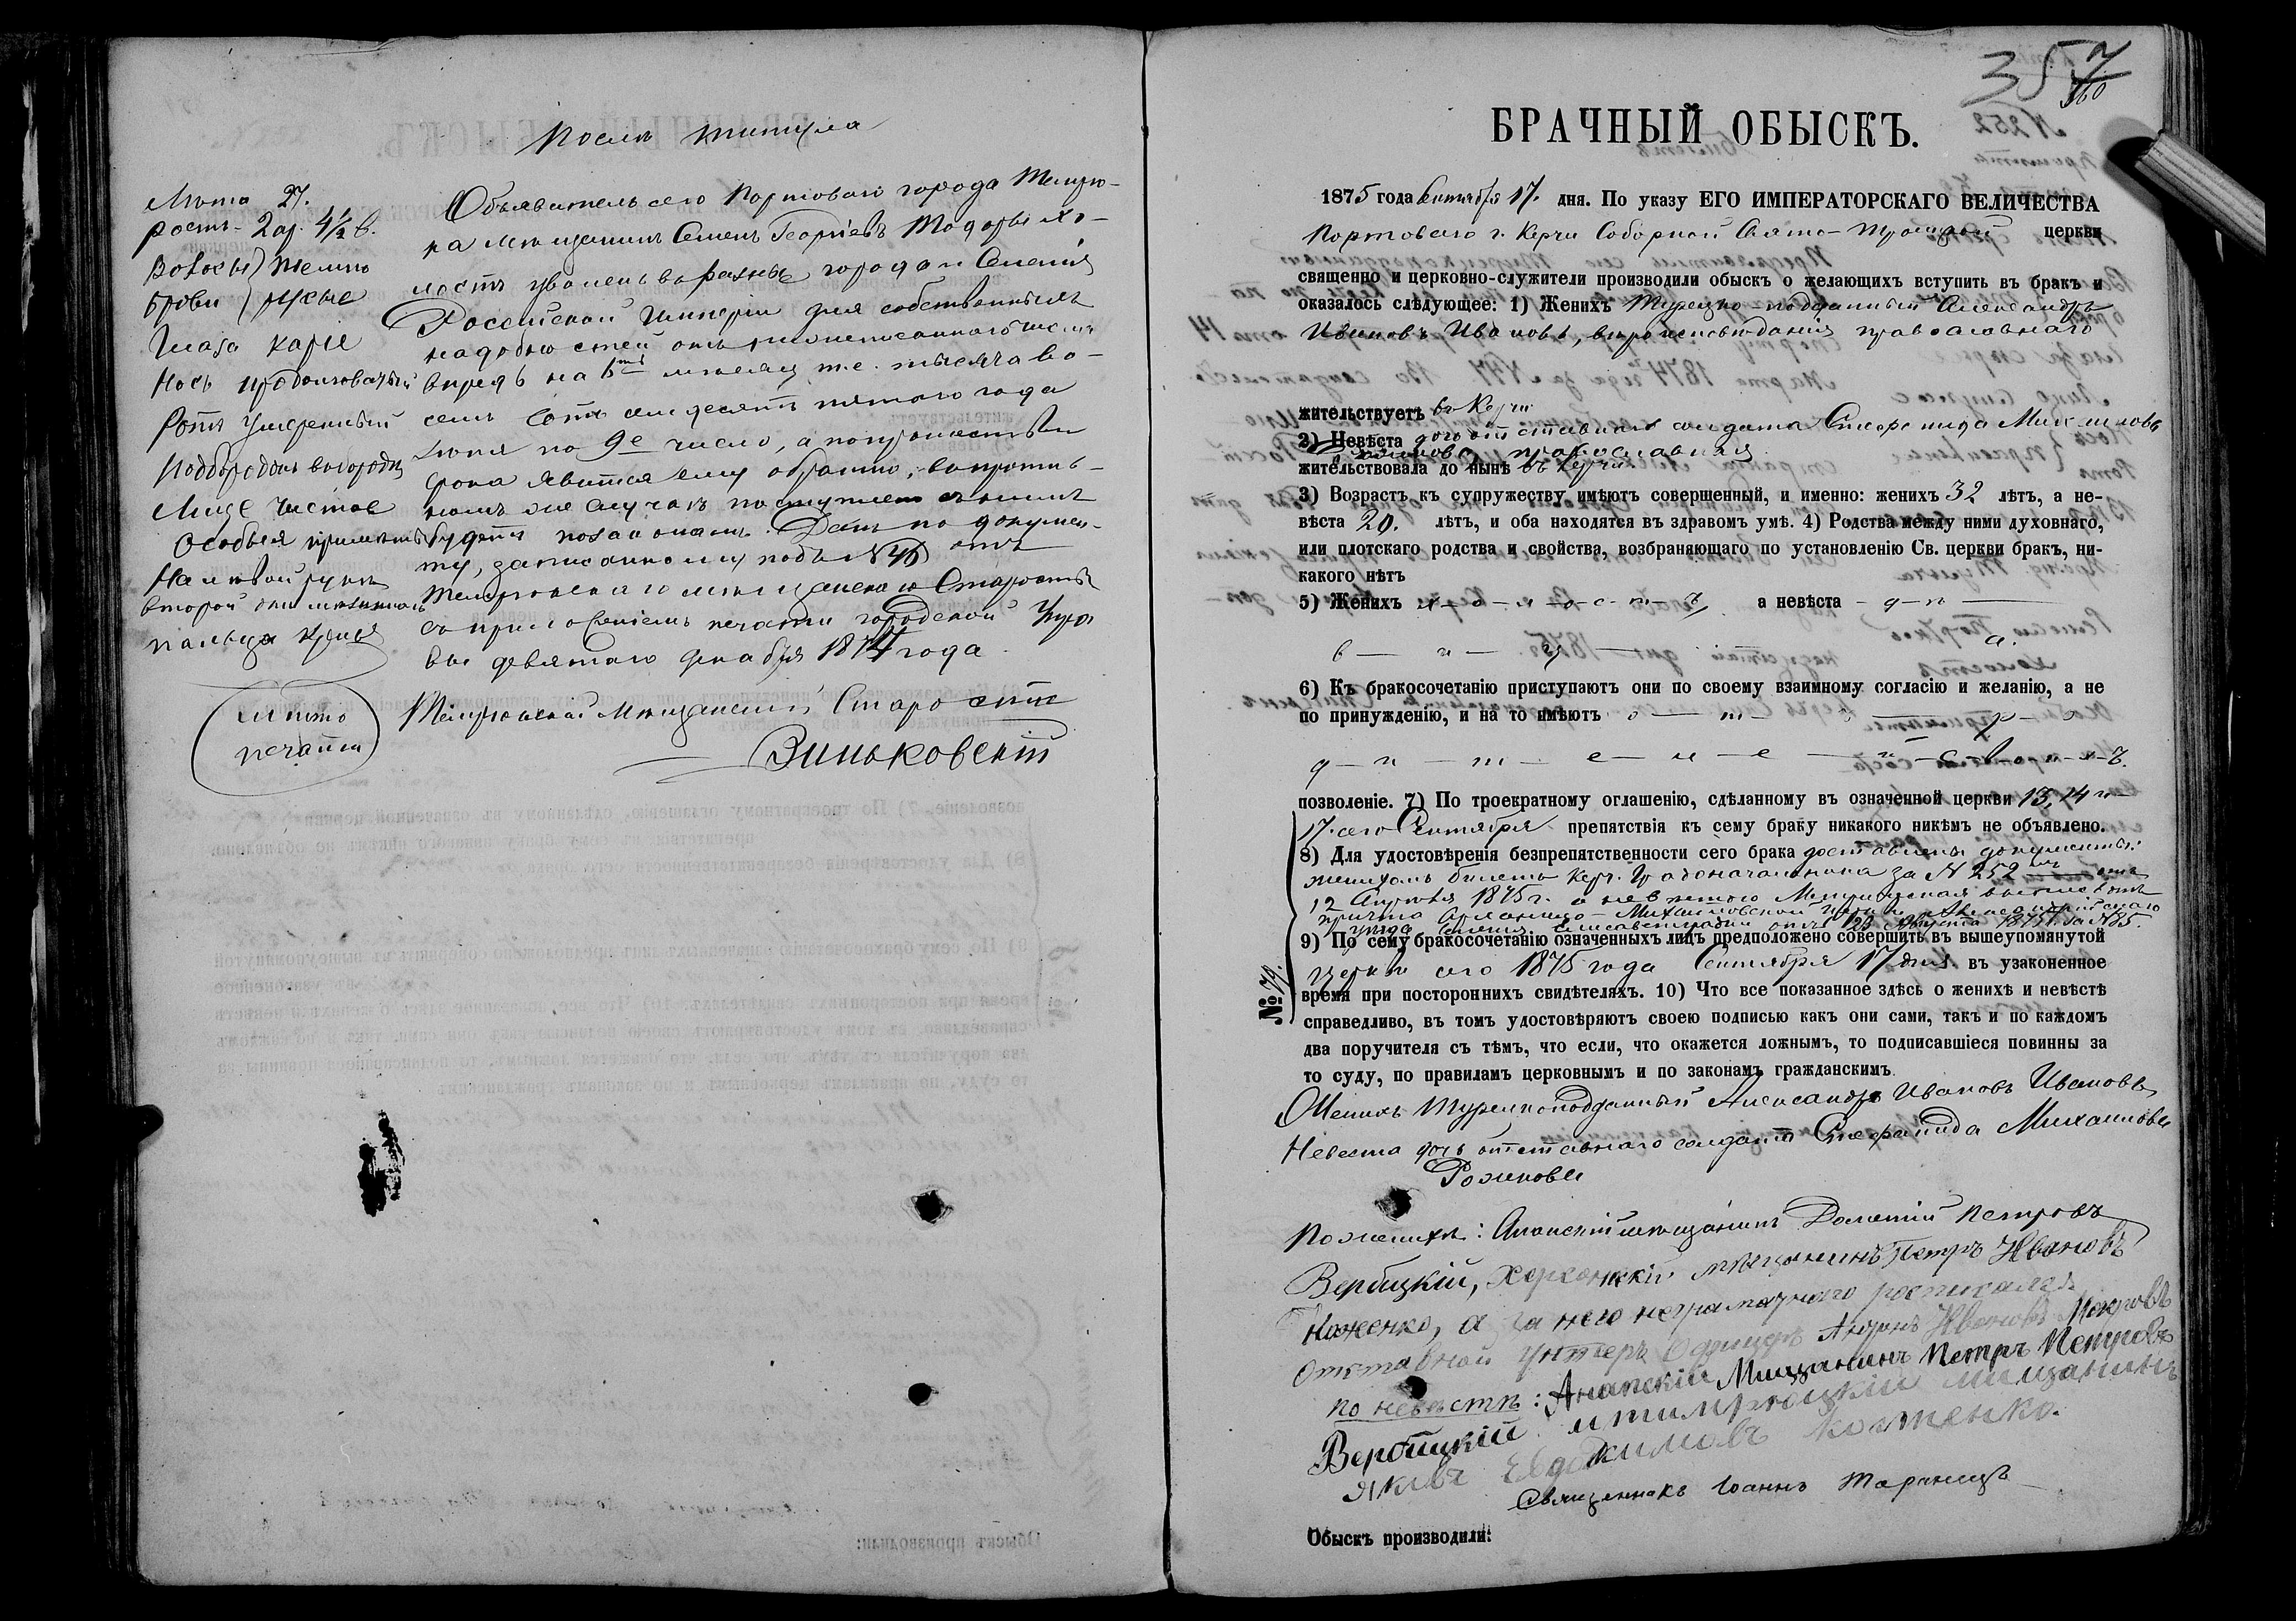 После титула
Лета 27.
ростъ - 2 ар. 4½ в.
Волосы } темно
брови } русые
Глаза карие
Носъ продолговатый
Ротъ умеренный
Подбородокъ
Лице чистое
Особыя приметы
На левой руке
второй
пальца
Место
печати
Объявитель сего Портоваго города Темрю-
ка мещанинъ Семенъ Георгіевъ хо-
лостъ уволенъ въ разные города и Селенія
Россійской Имперіи для собственныхъ
надобностей отъ нижеписаннаго числа
впредь на 6 месяц т.е. тысяча во-
семь сотъ семдесятъ пятого года
Іюня по 9е число, а по прошествіи
срока явится ему обратно, въ против-
номъ же случае поступлено съ нимъ
будетъ по законамъ. Данъ по докумен-
ту, записанному подъ № отъ
Темрюкскаго мещанскаго Старосты
съ приложеніемъ печати городской Упра
вы девятаго декабря 1874 года
Темрюкскій Мещанскій Староста
Зиньковскій
357
360
БРАЧНЫЙ ОБЫСКЪ.
1875 года Сентября 17. дня. По указу ЕГО ИМПЕРАТОРСКАГО ВЕЛИЧЕСТВА
Портоваго г. Керчи Соборной Свято-Троицкой церкви
священно и церковно-служители производили обыскъ о желающихъ вступить въ бракъ и
оказалось слѣдующее: 1) Женихъ Турецко подданный Александръ
Ивановъ Ивановъ, вероисповѣданія православнаго
жительствуетъ въ Керчи
2) Невѣста дочь отставнаго солдата Стефанида Михаилова
православная
жительствовала до нынѣ въ Керчи
3) Возрастъ къ супружеству имѣютъ совершенный, и именно: женихъ 32 лѣтъ, а не-
вѣста 20. лѣтъ, и оба находятся въ здравомъ умѣ. 4) Родства между ними духовнаго,
или плотскаго родства и свойства, возбраняющаго по установленію Св. церкви бракъ, ни-
какого нѣтъ
5) Женихъ х-о-л-о-с-т-ъ, а невѣста - д-ѣ-
в — и — ц — а.
6) Къ бракосочетанію приступаютъ они по своему взаимному согласію и желанію, а не
по принужденію, и на то имѣютъ о — т — ъ — р - о
д — и — т — е — л — е — й с-в-о-и-х-ъ.
позволеніе. 7) По троекратному оглашенію, сдѣланному въ означенной церкви 13, 14 и
17. сего Сентября препятствія къ сему браку никакого никѣмъ не объявлено.
8) Для удостовѣренія безпрепятственности сего брака доставлены документы:
женихомъ билетъ Керч. Градоначальника за № 252 отъ
12 Апреля 1875 г. а невестою Метрическая выпись отъ
причта Архангело-Михаиловской церкви
уезда Селенія отъ 28 Августа 1875 г. за № 85.
9) По сему бракосочетанію означенныхъ лицъ предположено совершить въ вышеупомянутой
церкви сего 1875 года Сентября 17 дня въ узаконенное
№ 79.
время при постороннихъ свидѣтеляхъ. 10) Что все показанное здѣсь о женихѣ и невѣстѣ
справедливо, въ томъ удостовѣряютъ своею подписью какъ они сами, такъ и по каждомъ
два поручителя съ тѣмъ, что если, что окажется ложнымъ, то подписавшіеся повинны за
то суду, по правиламъ церковнымъ и по законамъ гражданскимъ.
Женихъ Турецкоподданный Александръ Ивановъ Ивановъ
Невеста дочь отставнаго солдата Стефанида Михаилова
Рожнова
По женихѣ: Анапскій мещанинъ Дометій Петровъ
Вербицкій, Херсонскій мѣщанинъ Петръ Ивановъ
а за него неграмотнаго росписался
Отставной унтеръ Офицеръ Ивановъ
по невѣстѣ: Анапскій Мищанинъ Петръ Петровъ
Вербицкій и темрюцкій мищанинъ
Яковъ Евдокимовъ
Священникъ Іоаннъ
Обыскъ производили: